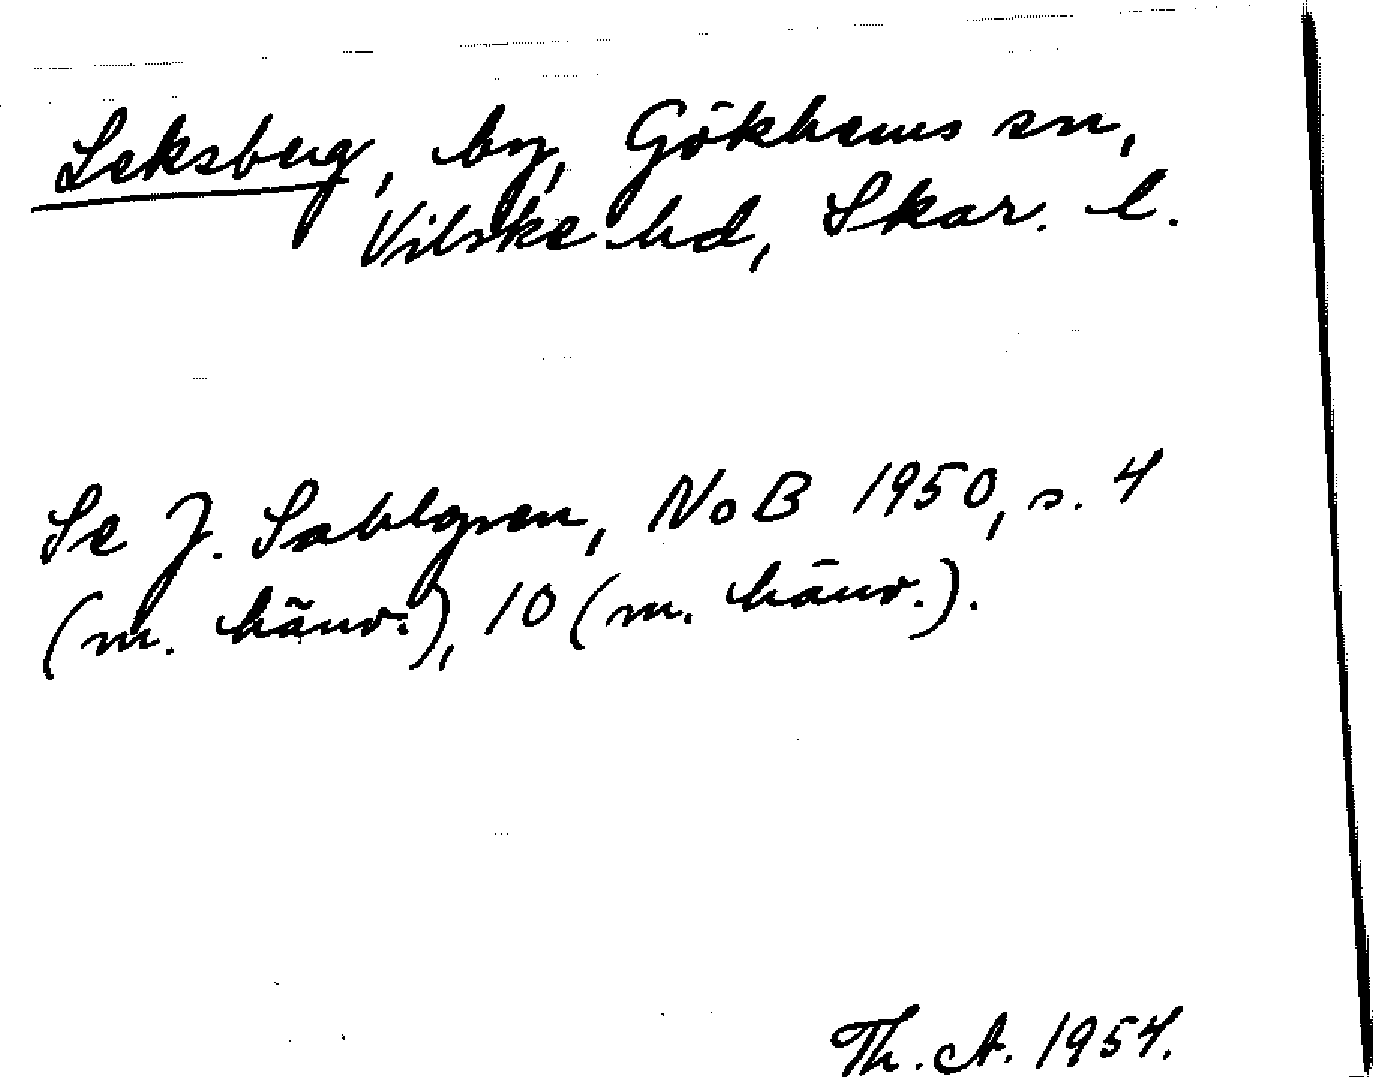 Leksberg, by, Gökhems sn,
Vilske hd, Skar. l.
Se J. Sahlgren, NoB 1950, s. 4
(m. hänv.), 10 (m. hänv.).
Th. A. 1954.